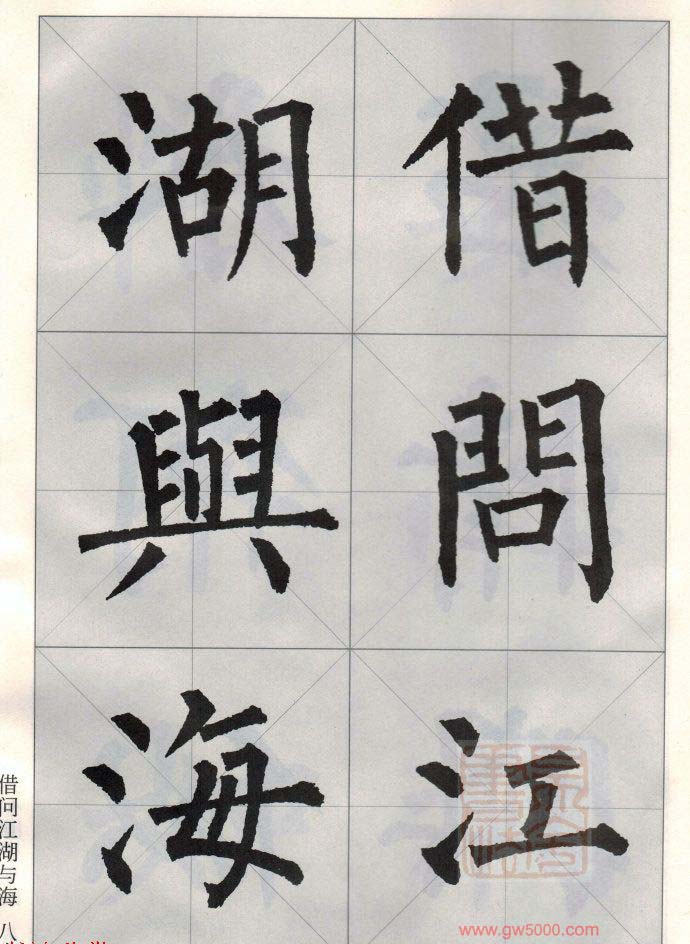 借問江
湖與海
借问江湖与海 八
www.gw5000.com